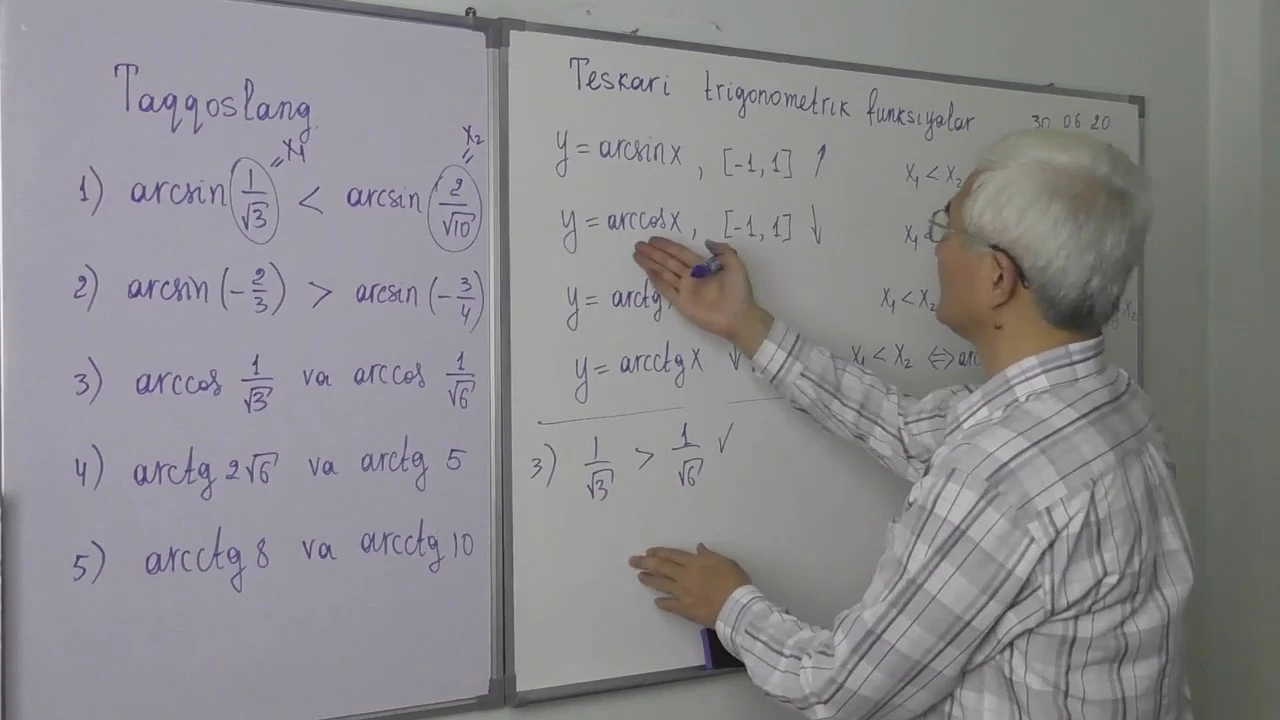 Taqqoslang
x₁
x₂
1) arcsin 1/√3 < arcsin 2/√10
2) arcsin (-2/3) > arcsin (-3/4)
3) arccos 1/√3 va arccos 1/√6
4) arctg 2√6 va arctg 5
5) arcctg 8 va arcctg 10
Teskari trigonometrik funksiyalar 30 06 20
y = arcsinx, [-1, 1] ↑ x₁ < x₂
y = arccosx, [-1, 1] ↓ x₁ <
y = arctg x₁ < x₂ x₂
y = arcctgx ↓ x₁ < x₂ ⇔ arc
3) 1/√3 > 1/√6 ✓